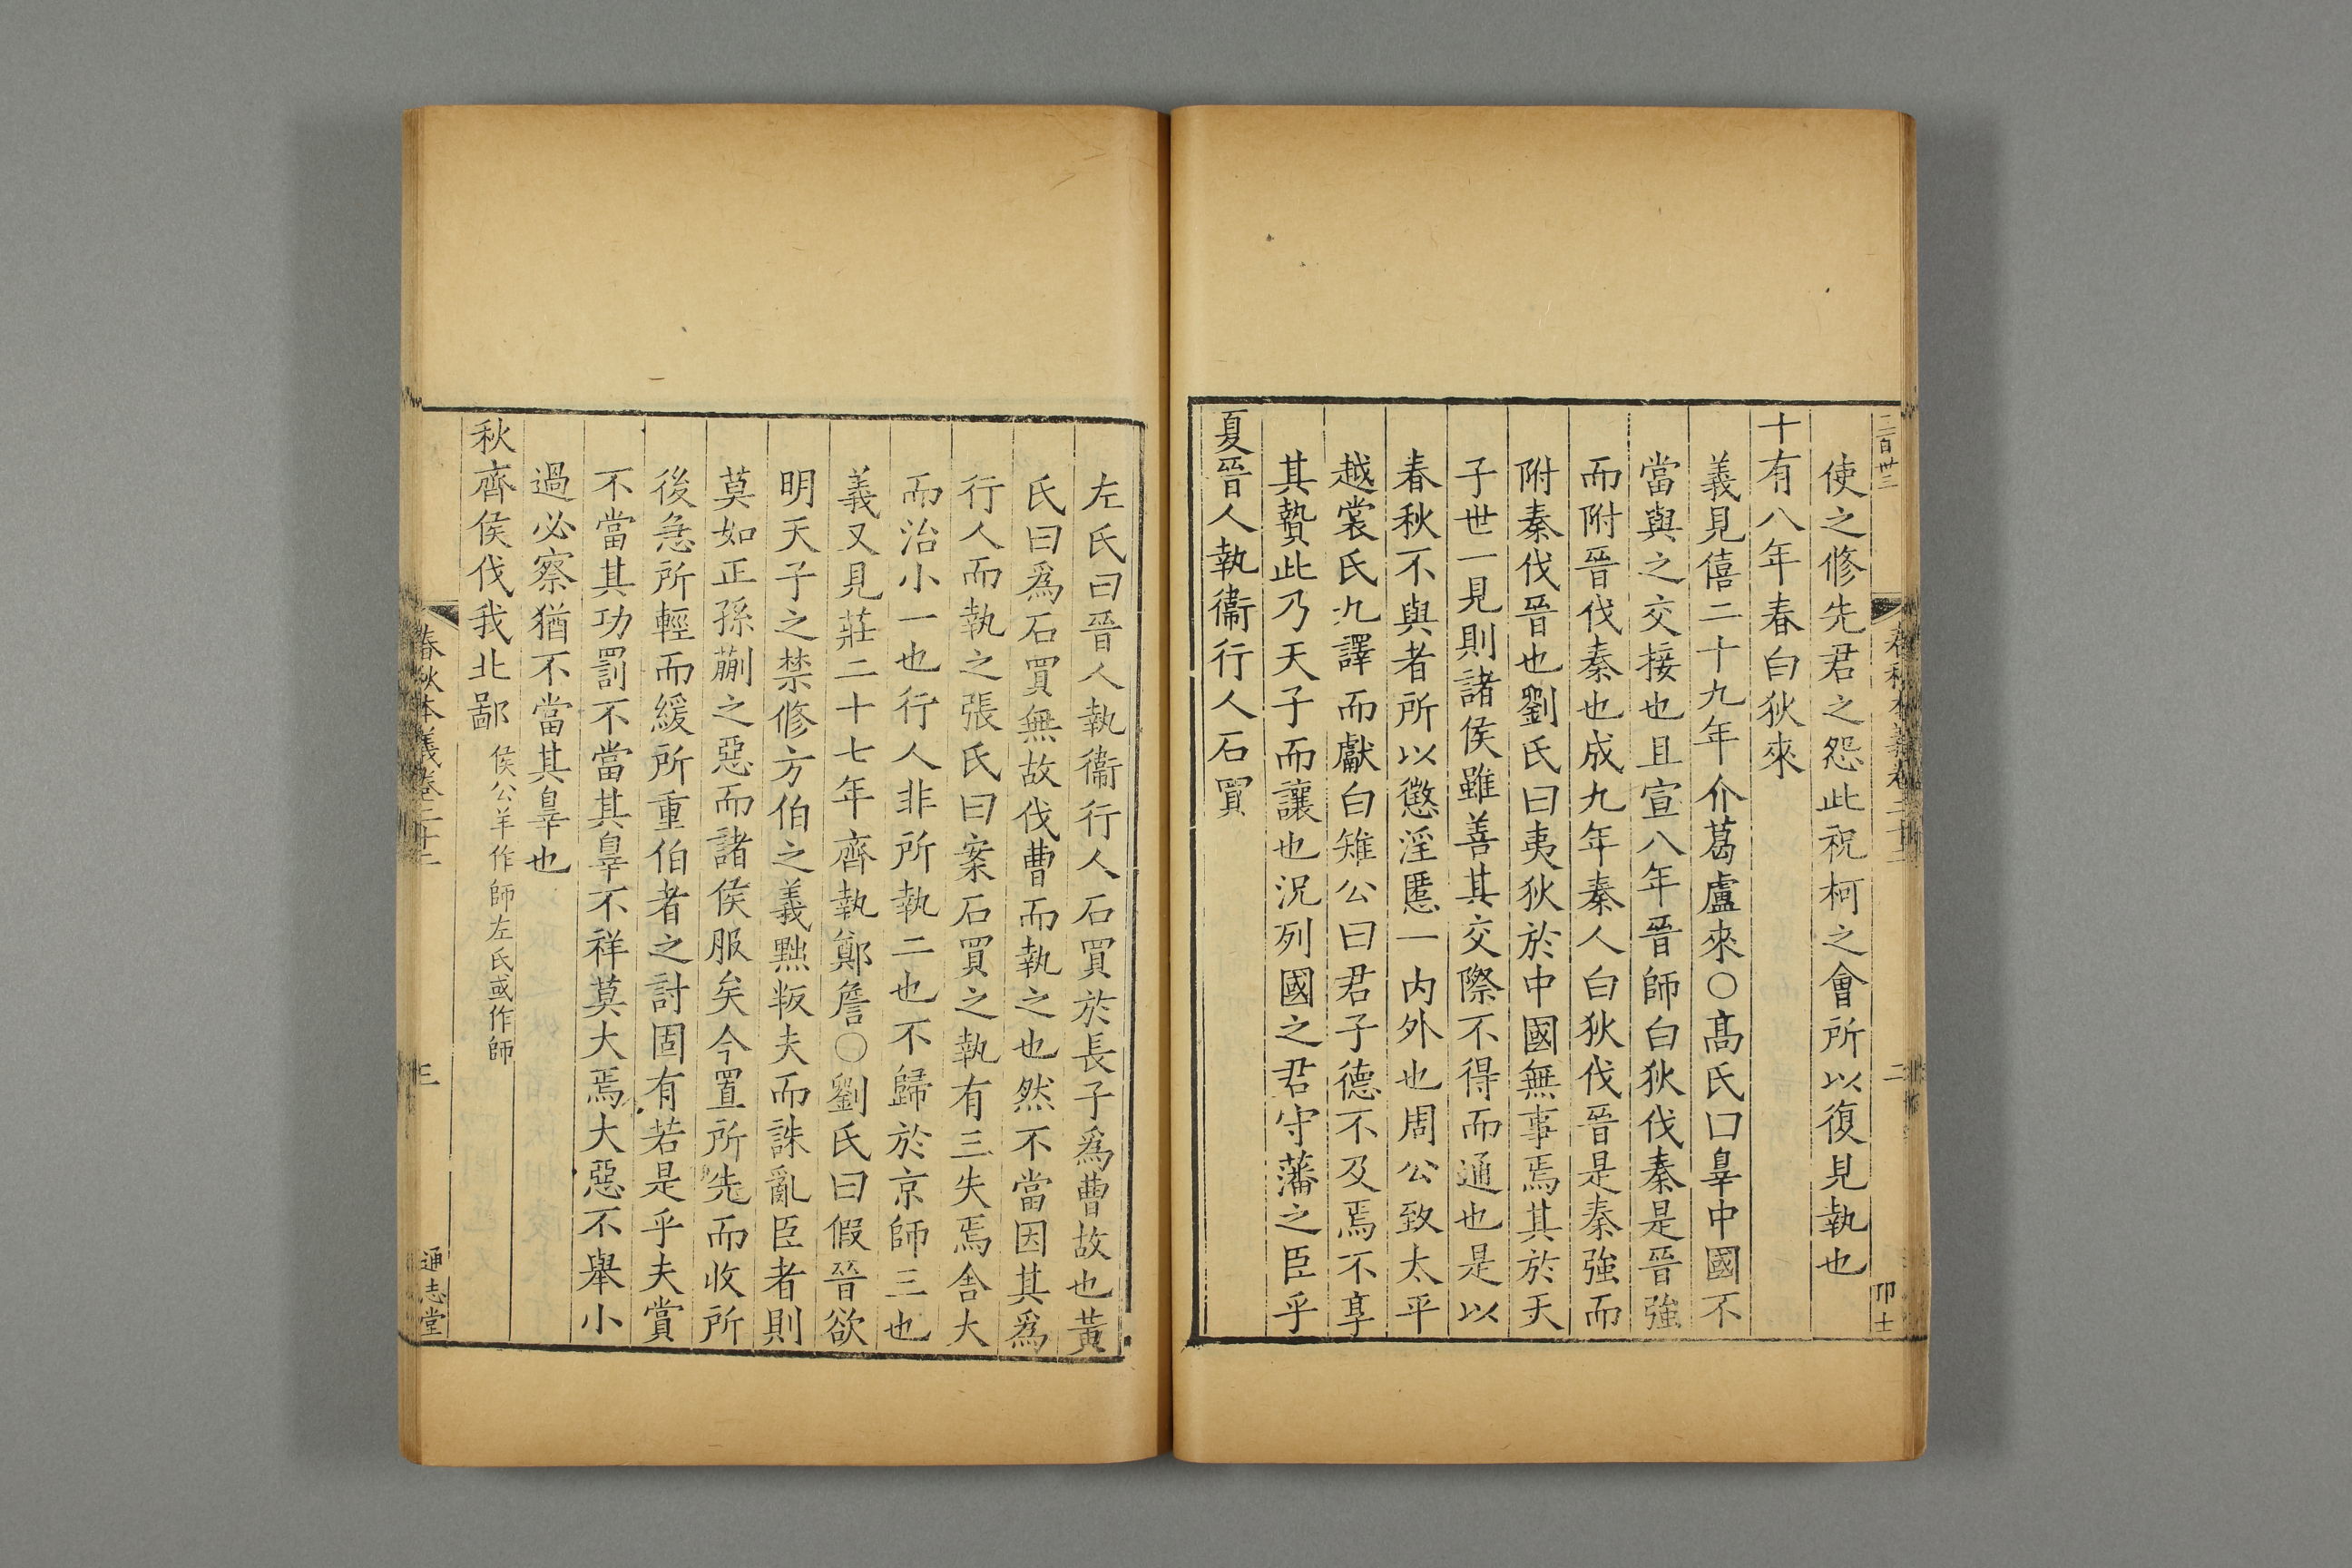 二百廿三
使之修先君之怨此祝柯之會所以復見執也
十有八年春白狄來
義見僖二十九年介葛盧來○髙氏曰辠中國不
當與之交接也且宣八年晉師白狄伐秦是晉強
而附晉伐秦也成九年秦人白狄伐晉是秦強而
附秦伐晉也劉氏曰夷狄於中國無事焉其於天
子世一見則諸侯雖善其交際不得而通也是以
春秋不與者所以懲淫慝一内外也周公致太平
越裳氏九譯而獻白雉公曰君子德不及焉不享
其贄此乃天子而讓也況列國之君守藩之臣乎
夏晉人執衞行人石買
左氏曰晉人執衞行人石買於長子爲曹故也黃
氏曰爲石買無故伐曹而執之也然不當因其爲
行人而執之張氏曰案石買之執有三失焉舍大
而治小一也行人非所執二也不歸於京師三也
義又見莊二十七年齊執鄭詹○劉氏曰假晉欲
明天子之禁修方伯之義黜叛夫而誅亂臣者則
莫如正孫蒯之惡而諸侯服矣今置所先而收所
後急所輕而緩所重伯者之討固有若是乎夫賞
不當其功罰不當其辠不祥莫大焉大惡不舉小
過必察猶不當其辠也
秋齊侯伐我北鄙 侯公羊作師左氏或作師
春秋本義卷二十二
三
通志堂